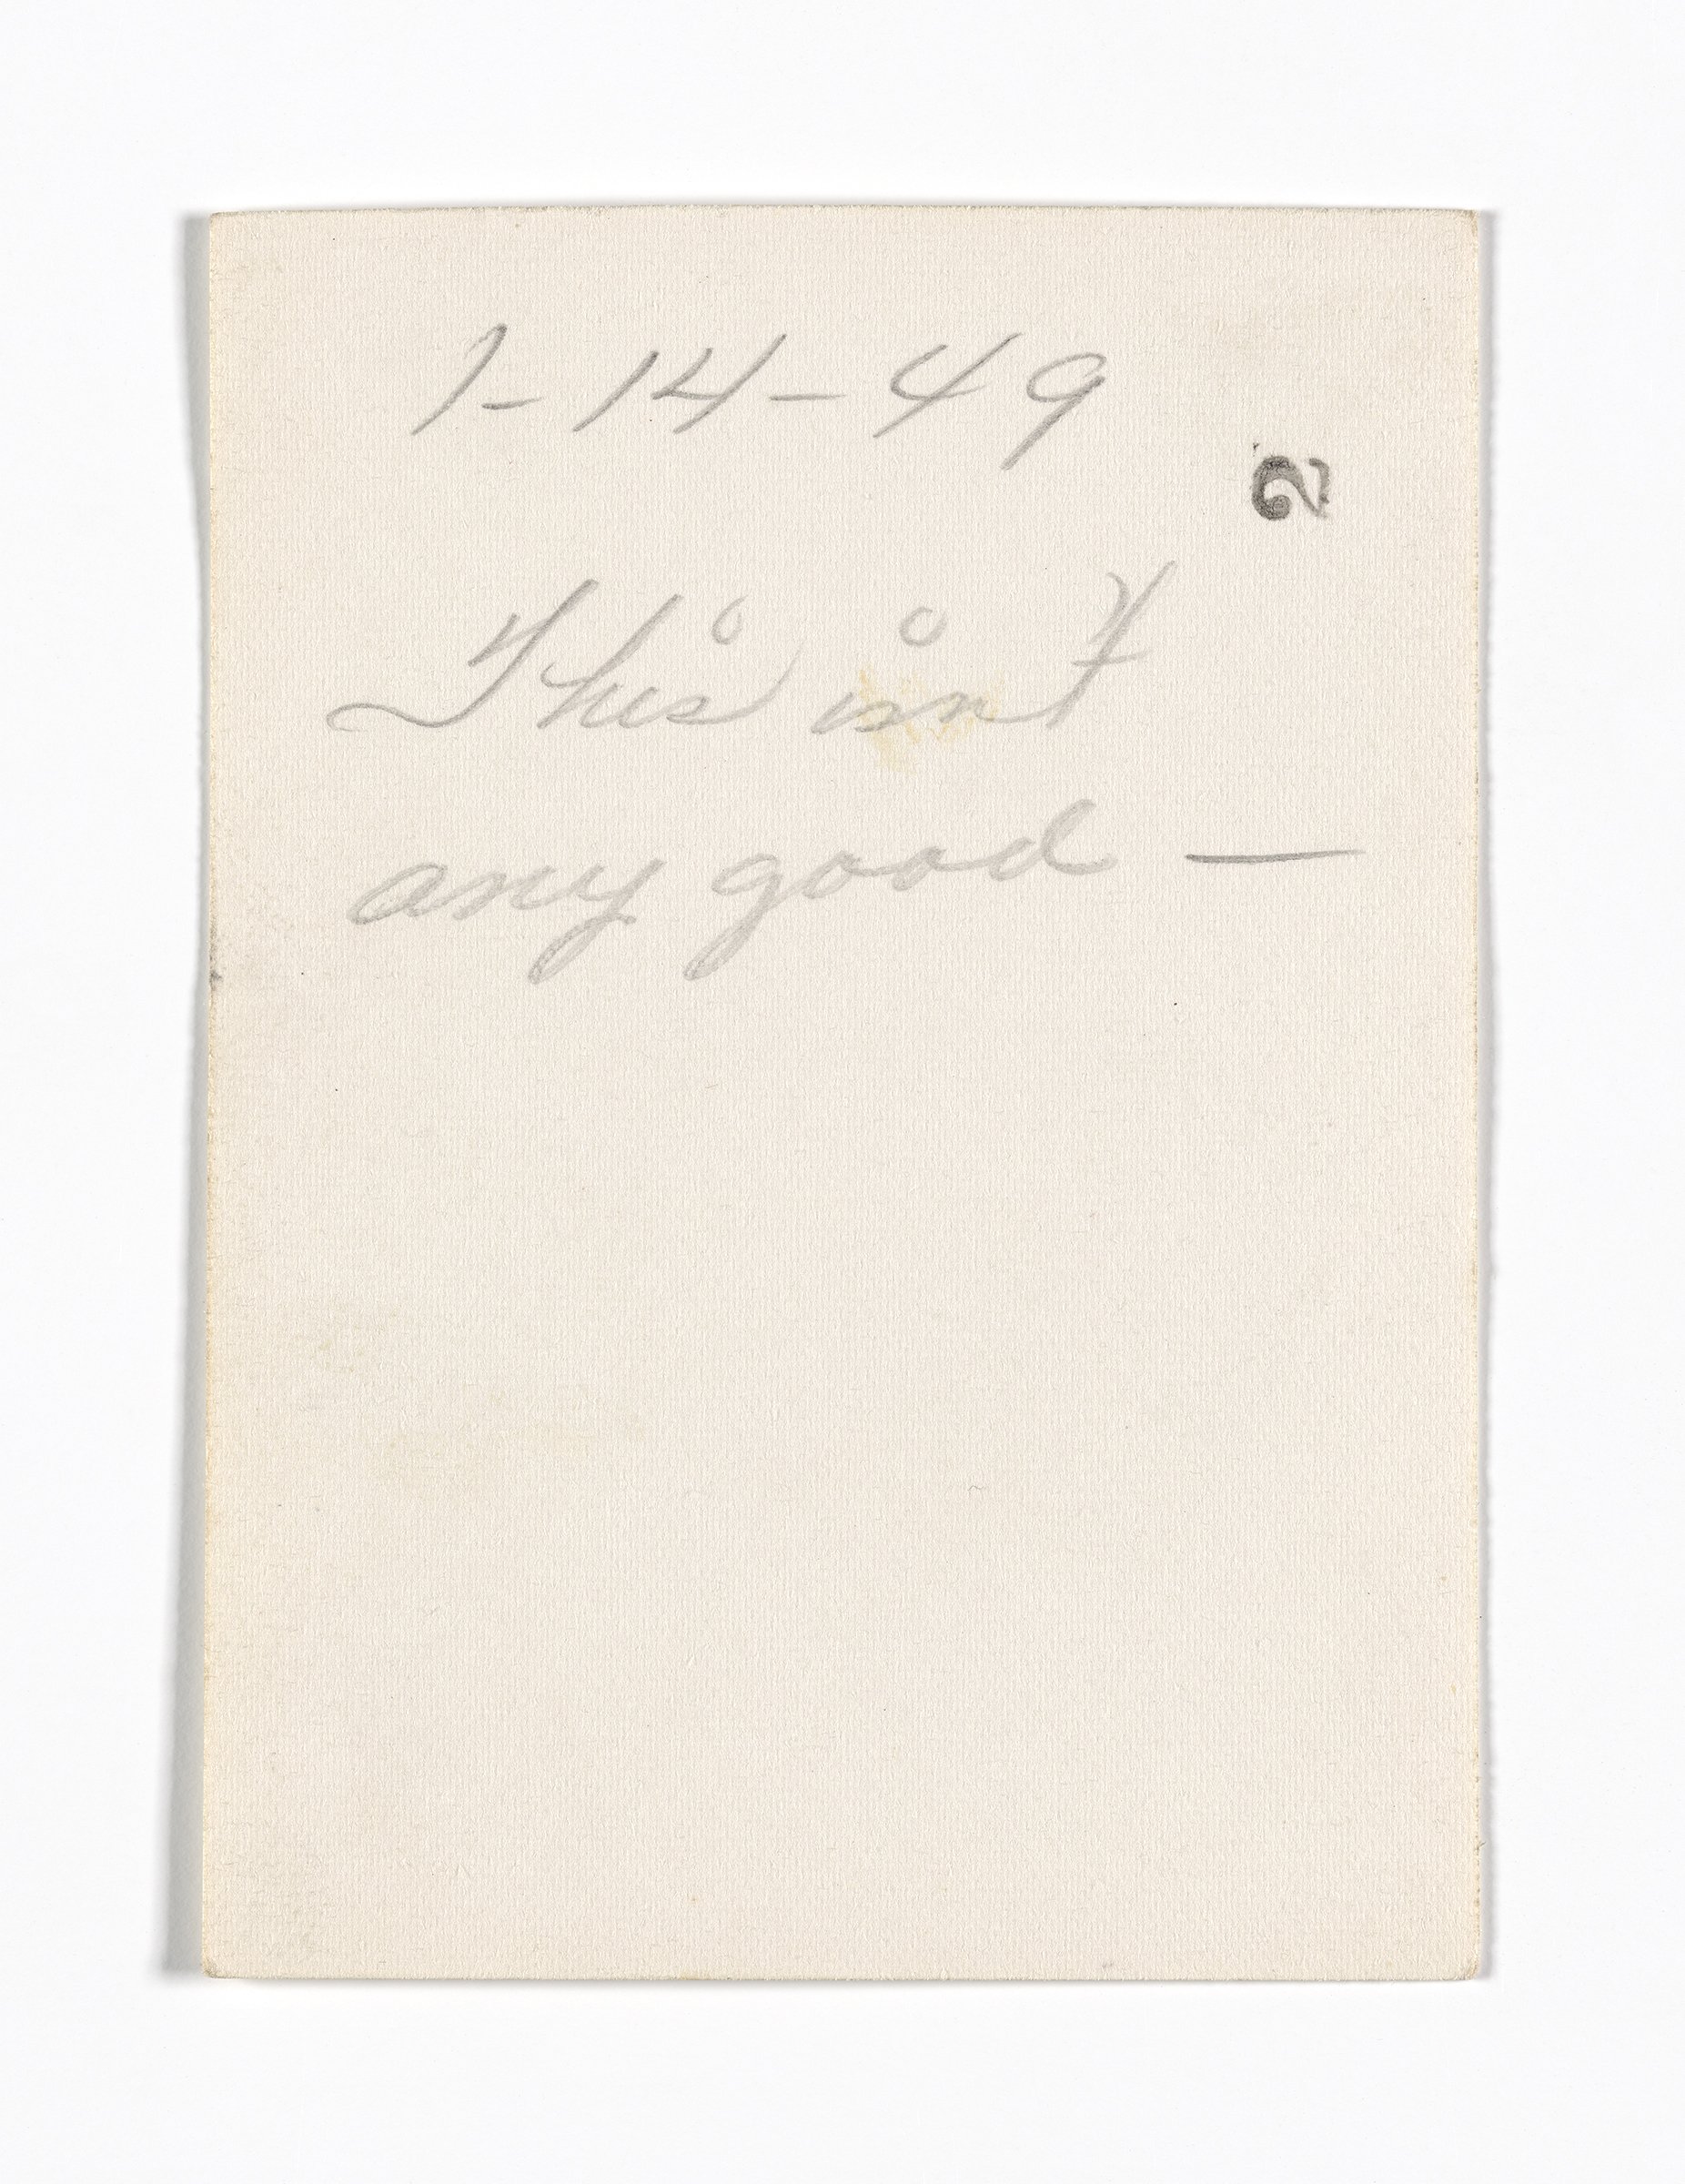 1-14-49
2
This isn't
any good —